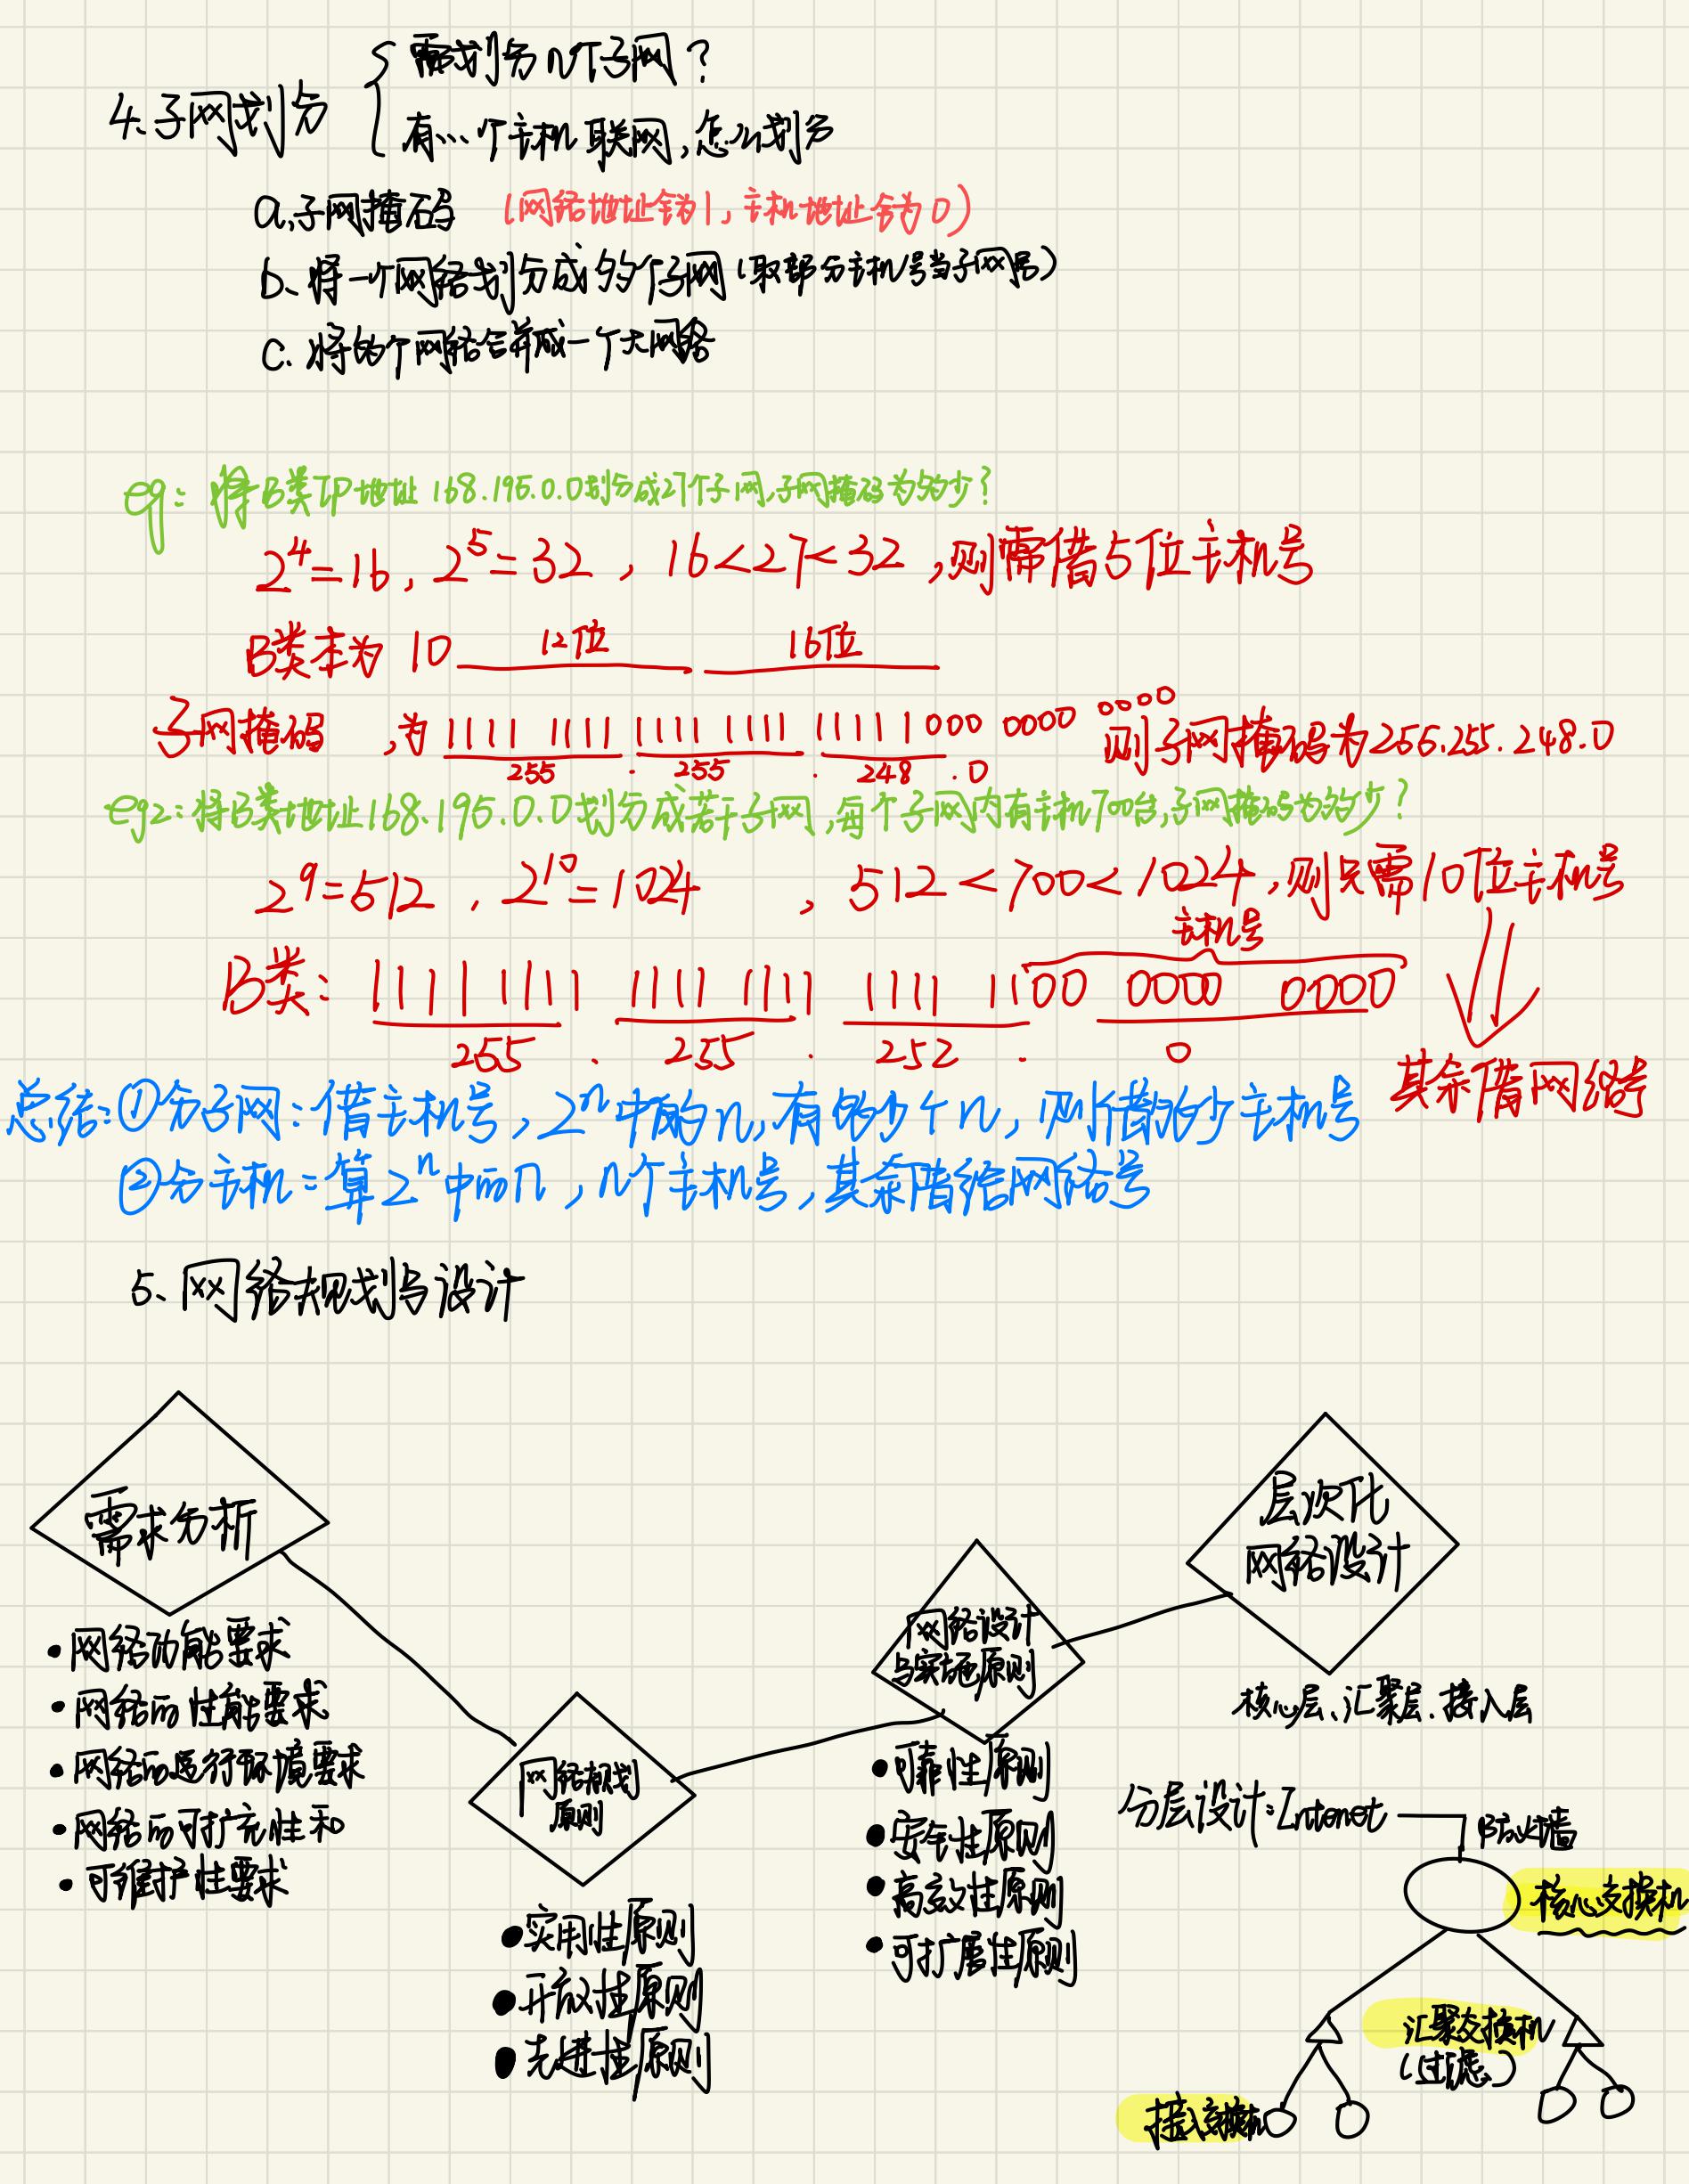 4.子网划分
需划分n个子网?
有…个主机联网,怎么划分
a.子网掩码 (网络地址全为1,主机地址全为0)
b、将一个网络划分成多个子网(取部分主机号当子网号)
c.将多个网络合并成一个大网络
eg:将B类IP地址168.195.0.0划分成27个子网,子网掩码为多少?
2⁴=16,2⁵=32,16<27<32,则需借5位主机号
B类本为 10 12位 16位
子网掩码,为 1111 1111 1111 1111 11111000 0000 0000 则子网掩码为255.255.248.0
255 . 255 . 248 .0
eg2:将B类地址168.195.0.0划分成若干子网,每个子网内有主机700台,子网掩码为多少?
2⁹=512,2¹⁰=1024,512<700<1024,则只需10位主机号
主机号
B类:1111 1111 1111 1111 1111 1100 0000 0000
255 . 255 . 252 . 0
其余借网络号
总结:①分子网:借主机号,2ⁿ中的n,有多少个n,则借多少主机号
②分主机:算2ⁿ中的n,n个主机号,其余借给网络号
5、网络规划与设计
需求分析
•网络功能要求
•网络的性能要求
•网络的运行环境要求
•网络的可扩充性和
•可维护性要求
网络规划
原则
•实用性原则
•开放性原则
•先进性原则
网络设计
与实施原则
•可靠性原则
•安全性原则
•高效性原则
•可扩展性原则
层次化
网络设计
核心层、汇聚层.接入层
分层设计:Intenet
防火墙
核心交换机
汇聚交换机
(过滤)
接入交换机